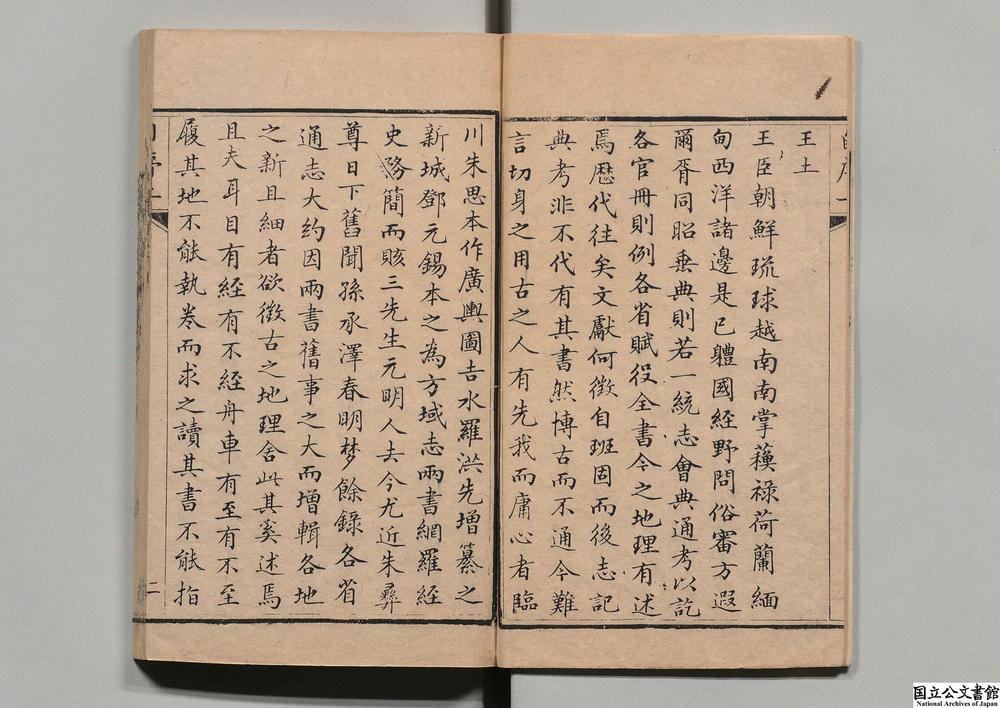 王土
王臣朝鮮琉球越南南掌蘓祿荷蘭緬
甸西洋諸邊是已軆國經野問俗審方遐
爾胥同昭垂典則若一統志會典通考以訖
各官冊則例各省賦役全書今之地理有述
焉歷代往矣文獻何徵自班固而後志記
典考非不代有其書然博古而不通今難
言切身之用古之人有先我而庸心者臨
川朱思本作廣輿圖吉水羅洪先增纂之
新城鄧元錫本之為方域志兩書網羅經
史務簡而賅三先生元明人去今尤近朱彝
尊日下舊聞孫承澤春明梦餘錄各省
通志大約因兩書舊事之大而增輯各地
之新且細者欲徵古之地理舍此其奚述焉
且夫耳目有經有不經舟車有至有不至
履其地不能執卷而求之讀其書不能指
二
国立公文書館
National Archives of Japan